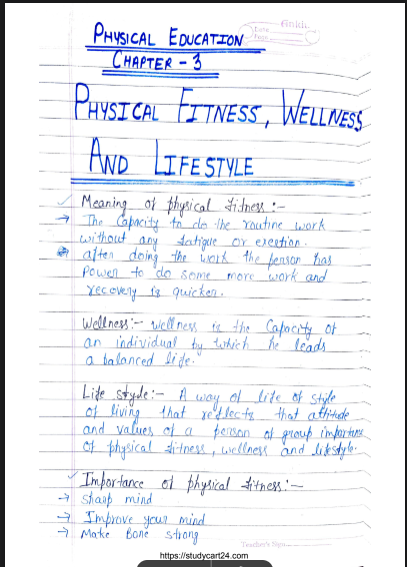 Girish
Date
Page
PHYSICAL EDUCATION
CHAPTER - 3
PHYSICAL FITNESS, WELLNESS
AND LIFESTYLE
Meaning of physical fitness :-
→ The Capacity to do the routine work
without any fatigue or exertion.
→ after doing the work the person has
power to do some more work and
recovery is quicker.
Wellness:- Wellness is the Capacity of
an individual by which he leads
a balanced life.
Life style:- A way of life of style
of living that reflects that attitude
and values of a person of group importance
of physical fitness, wellness and lifestyle.
Importance of physical fitness:-
→ Sharp mind
→ Improve your mind
→ Make Bone strong
Teacher's Sign
https://studycart24.com